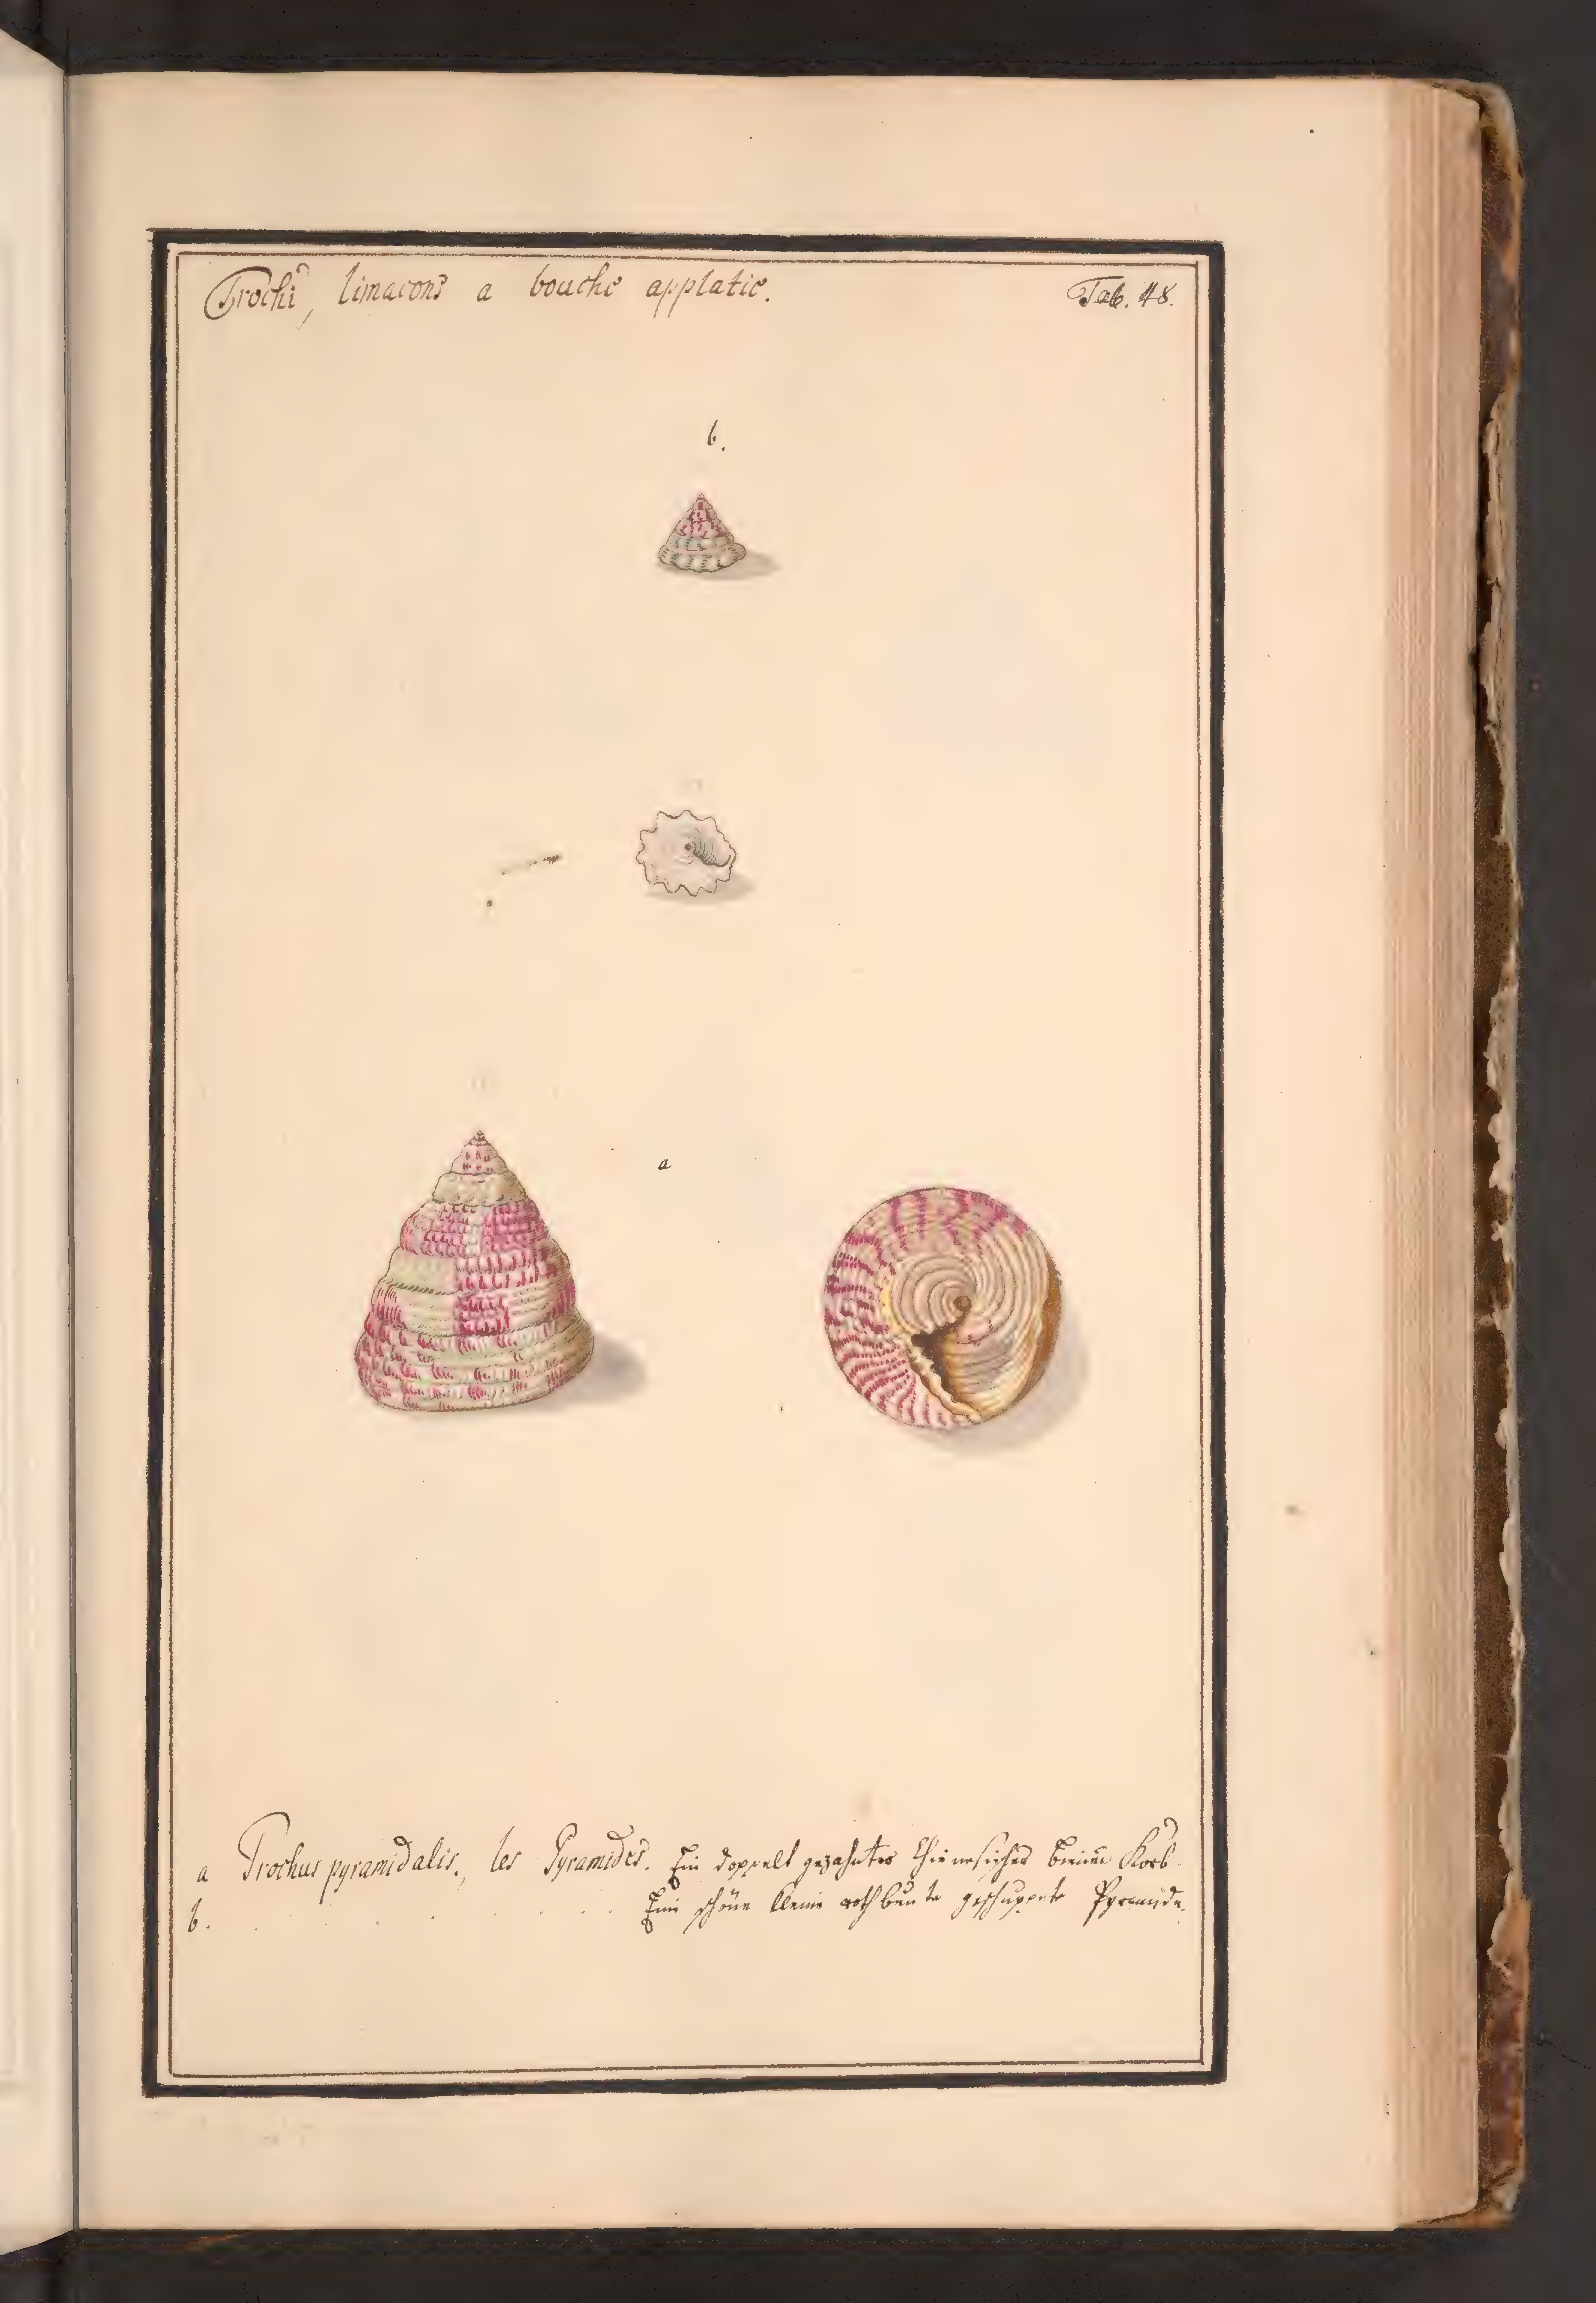 Trochi, limacons a bouche applatie. Tab. 48.
b.
a
a Trochus pyramidalis., les Pyramides. Ein doppelt gezahnter Chinesischer Bienen Korb.
b. . . . . . . Eine schöne kleine rothbunte geschuppete Pyramide.